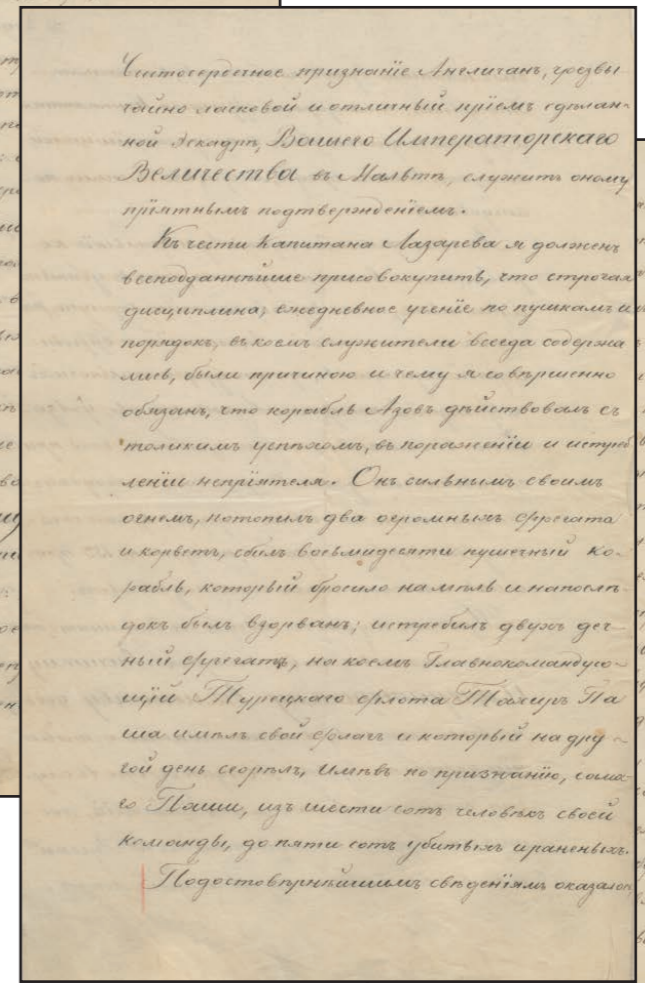 Чистосердечное признаніе Англичанъ, чрезвы
чайно ласковой и отличный пріемъ сдѣлан-
ной Эскадрѣ, Вашего Императорскаго
Величества въ Мальтѣ, служитъ оному
пріятнымъ подтвержденіемъ.
Къ чести Капитана Лазарева я долженъ
всеподданнѣйше присовокупить, что строгая
дисциплина, ежедневное ученіе по пушкамъ и
порядокъ, въ коемъ служители всегда содержа
лись, были причиною и чему я совершенно
обязанъ, что корабль Азовъ дѣйствовалъ съ
толикимъ успѣхомъ, въ пораженіи и истреб
леніи непріятеля. Онъ сильнымъ своимъ
огнемъ, потопилъ два огромныхъ фрегата
и корветъ, сбилъ восьмидесяти пушечный ко-
рабль, который бросило на мѣль и напослѣ
докъ былъ взорванъ; истребилъ двухъ деч
ный фрегатъ, на коемъ Главнокомандую-
щій Турецкаго флота Тахиръ Па
ша имѣлъ свой флагъ и который на дру-
гой день сгорѣлъ, имѣвъ по признанію, сама
го Паши, изъ шести сотъ человѣкъ своей
команды, до пяти сотъ убитыхъ и раненыхъ.
По достовѣрнѣйшимъ свѣденіямъ оказалось